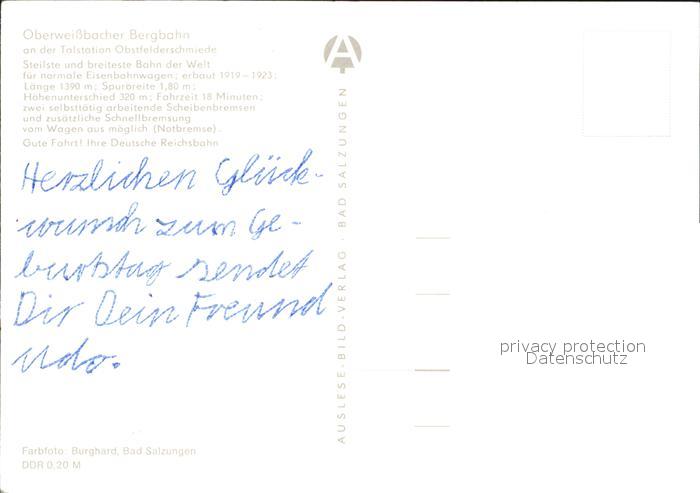 Oberweißbacher Bergbahn
an der Talstation Obstfelderschmiede
Steilste und breiteste Bahn der Welt
für normale Eisenbahnwagen; erbaut 1919–1923;
Länge 1390 m; Spurbreite 1,80 m;
Höhenunterschied 320 m; Fahrzeit 18 Minuten;
zwei selbsttätig arbeitende Scheibenbremsen
und zusätzliche Schnellbremsung
vom Wagen aus möglich (Notbremse).
Gute Fahrt! Ihre Deutsche Reichsbahn
Herzlichen Glück-
wunsch zum Ge-
burtstag sendet
Dir Dein Freund
Udo.
Farbfoto: Burghard, Bad Salzungen
DDR 0,20 M
A
AUSLESE-BILD-VERLAG · BAD SALZUNGEN
privacy protection
Datenschutz